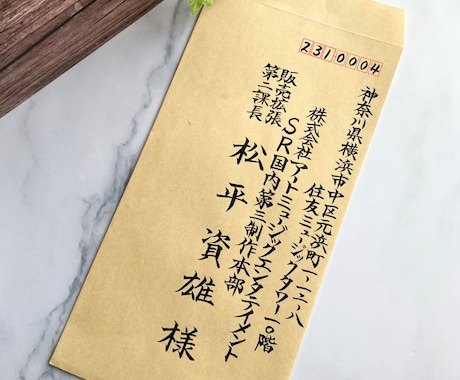 2310004
神奈川県横浜市中区元浜町一、一二、八
住友ミュージックタワー一〇階
株式会社アートミュージックエンタテイメント
SR国内第三制作本部
販売拡張
第二課長
松平資雄様